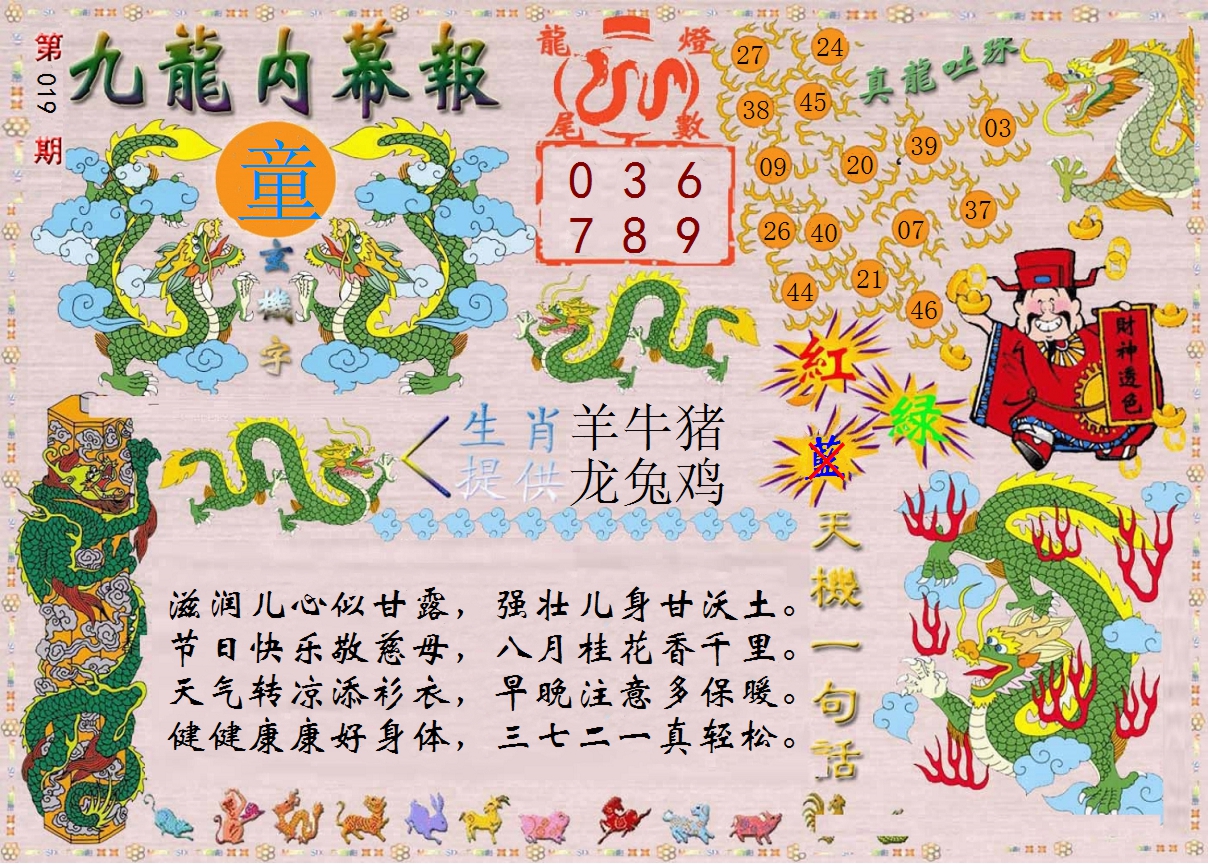 第019期
九龍内幕報
童
玄機字
龍燈
尾數
0 3 6
7 8 9
真龍吐珠
27 24
38 45
09 20 39 03
26 40 07 37
44 21 46
財神透色
紅
綠
藍
生肖 羊牛猪
提供 龙兔鸡
天機一句話
滋润儿心似甘露，强壮儿身甘沃土。
节日快乐敬慈母，八月桂花香千里。
天气转凉添衫衣，早晚注意多保暖。
健健康康好身体，三七二一真轻松。